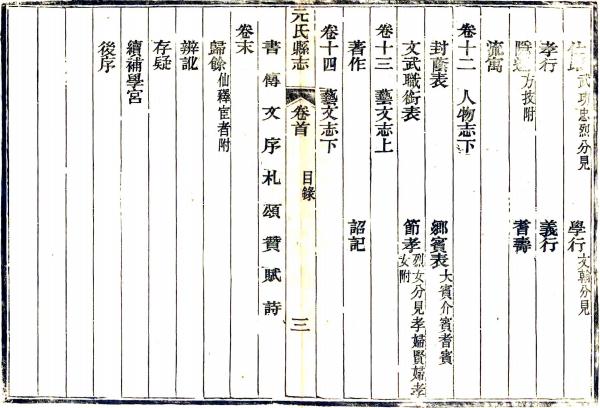 武功忠烈分見 學行 文翰分見
孝行 義行
方技附 耆壽
流寓
卷十二 人物志下
封蔭表 鄉賓表 大賓介賓耆賓
文武職銜表 節孝 烈女分見孝婦賢婦孝女附
卷十三 藝文志上
著作 詔記
卷十四 藝文志下
元氏縣志 卷首 目錄 三
書傳文序札頌贊賦詩
卷末
歸餘 仙釋宦者附
辨訛
存疑
續補學宮
後序